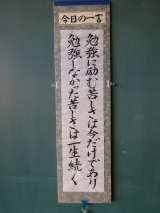 今日の一言
勉強に励む苦しさは今だけであり
勉強しなかった苦しさは一生続く